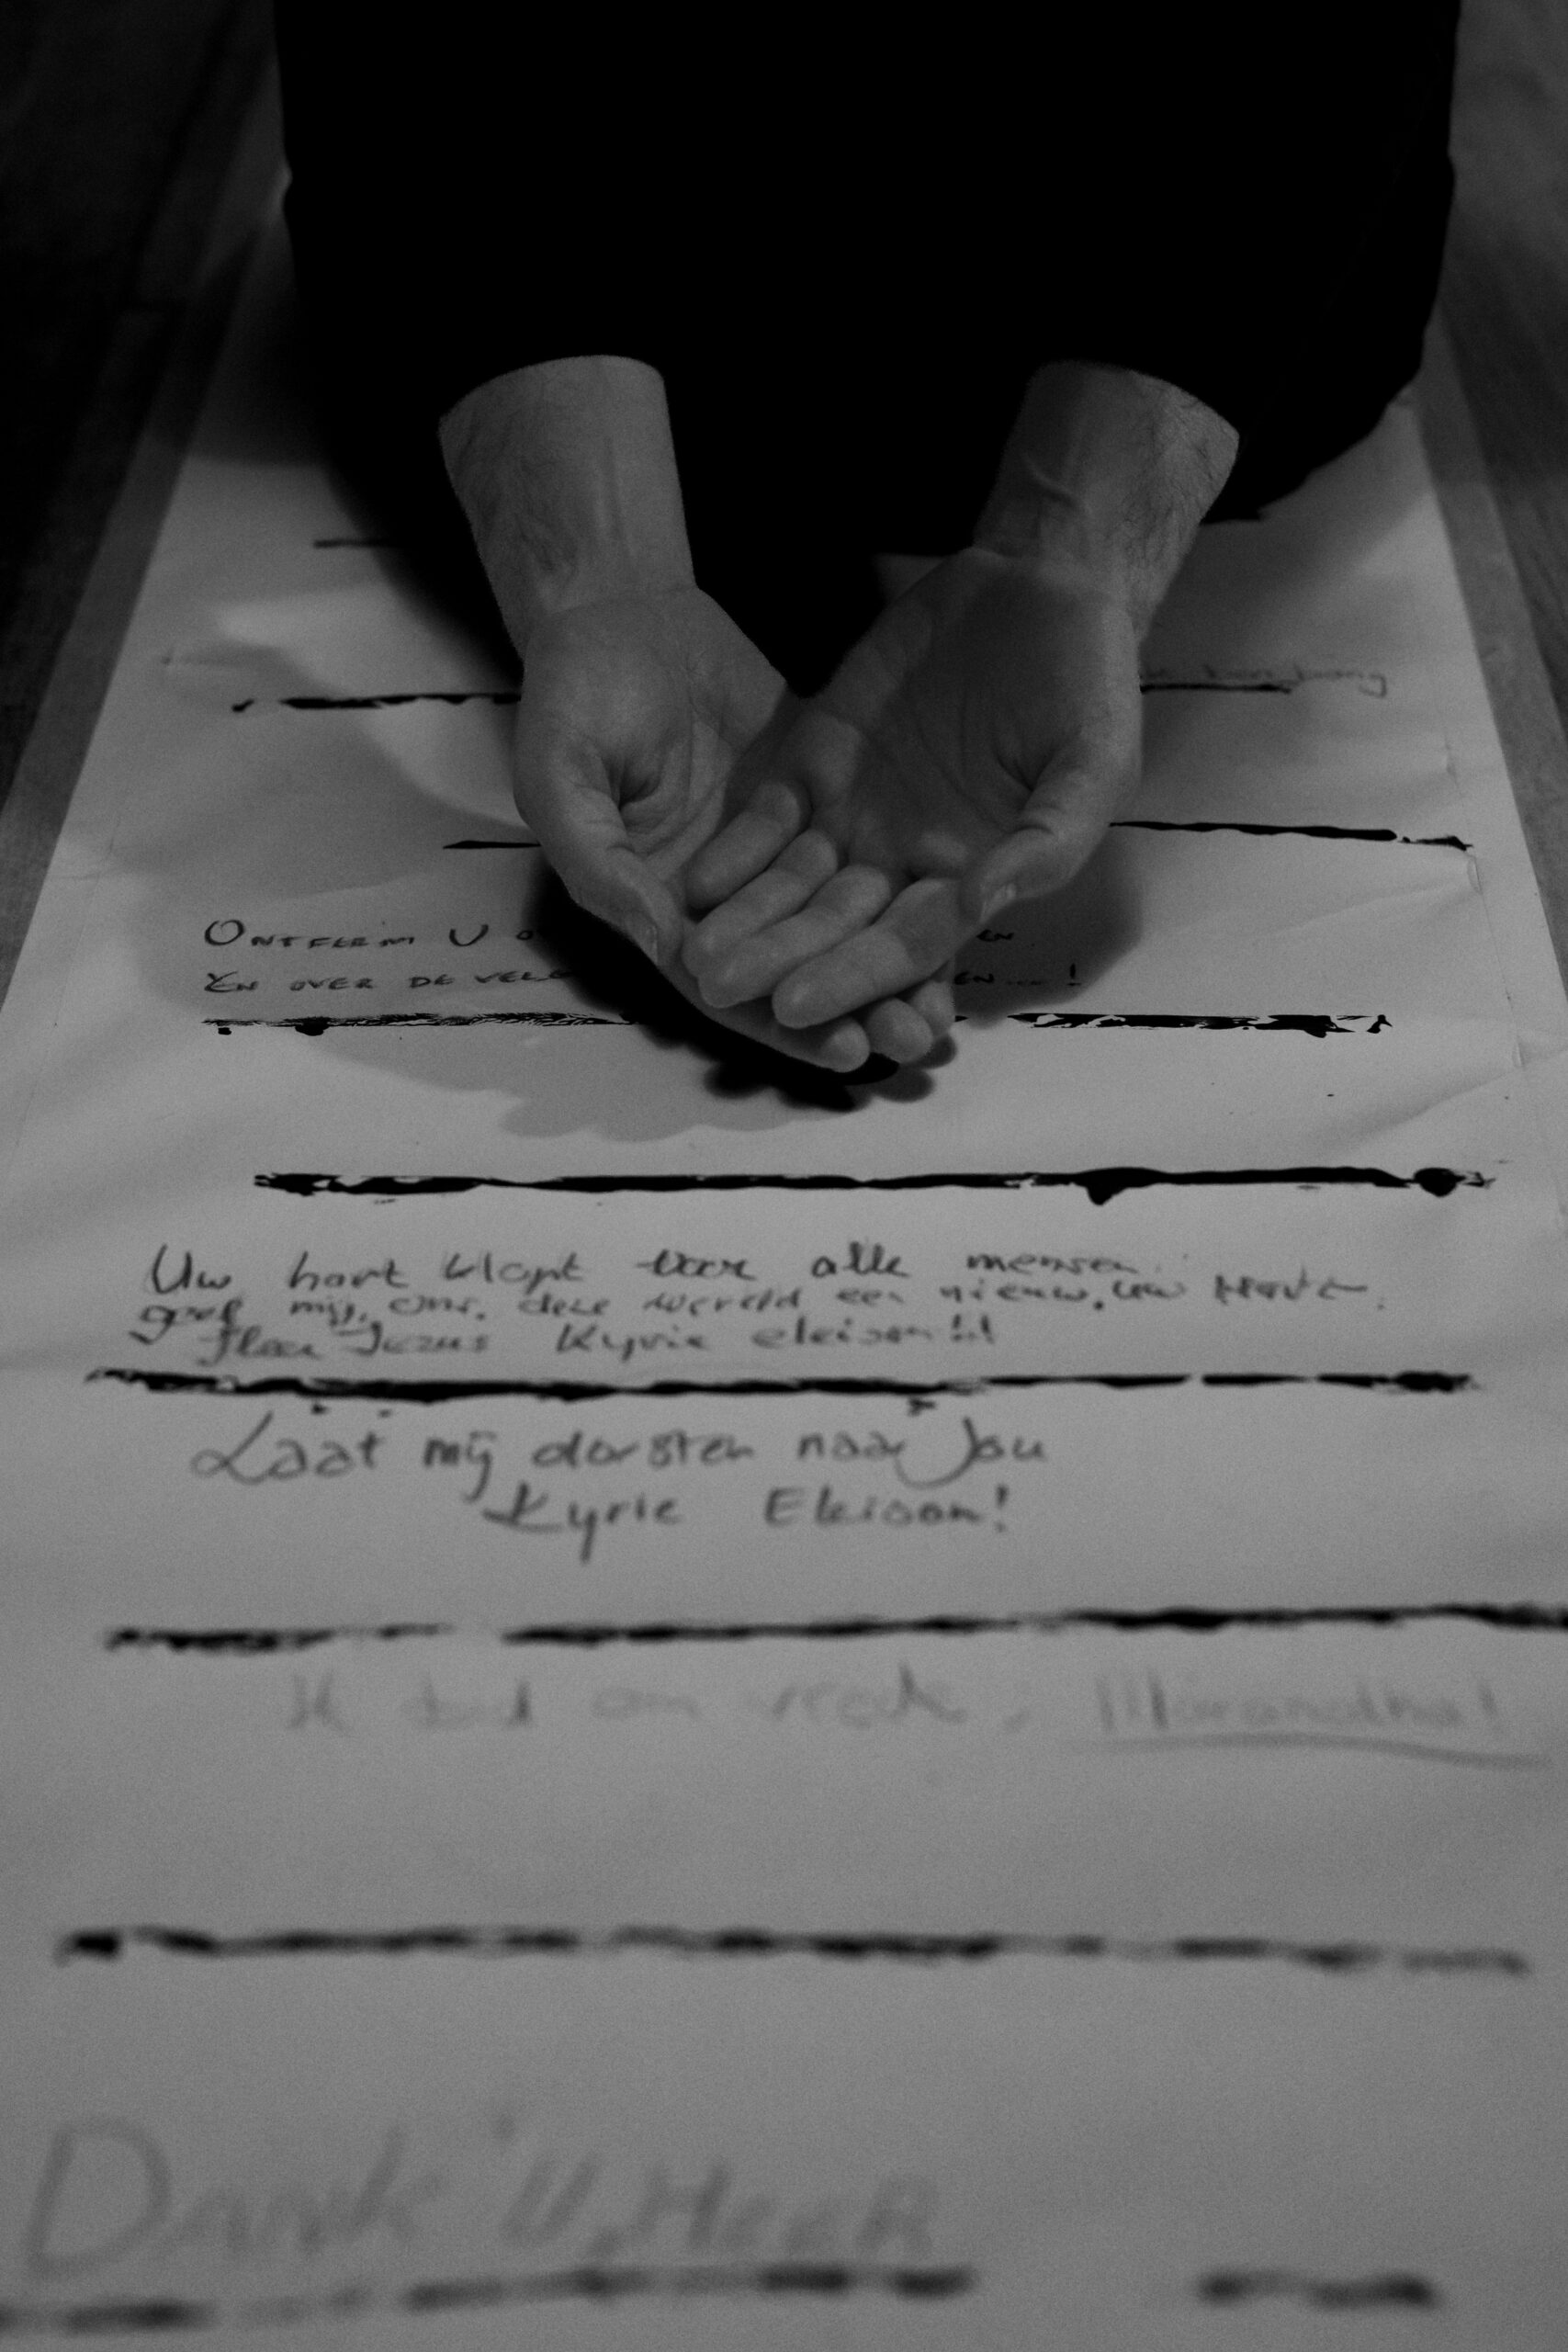 ONTFERM U
EN OVER DE VELE EN...!
Uw hart klopt voor alle mensen.
geef mij, ons, deze wereld een nieuw, Uw Hart.
Heer Jezus Kyrie eleison!!!
Laat mij dorsten naar Jou
Kyrie Eleison!
Ik bid om vrede, Maranatha!
Dank U, Heer